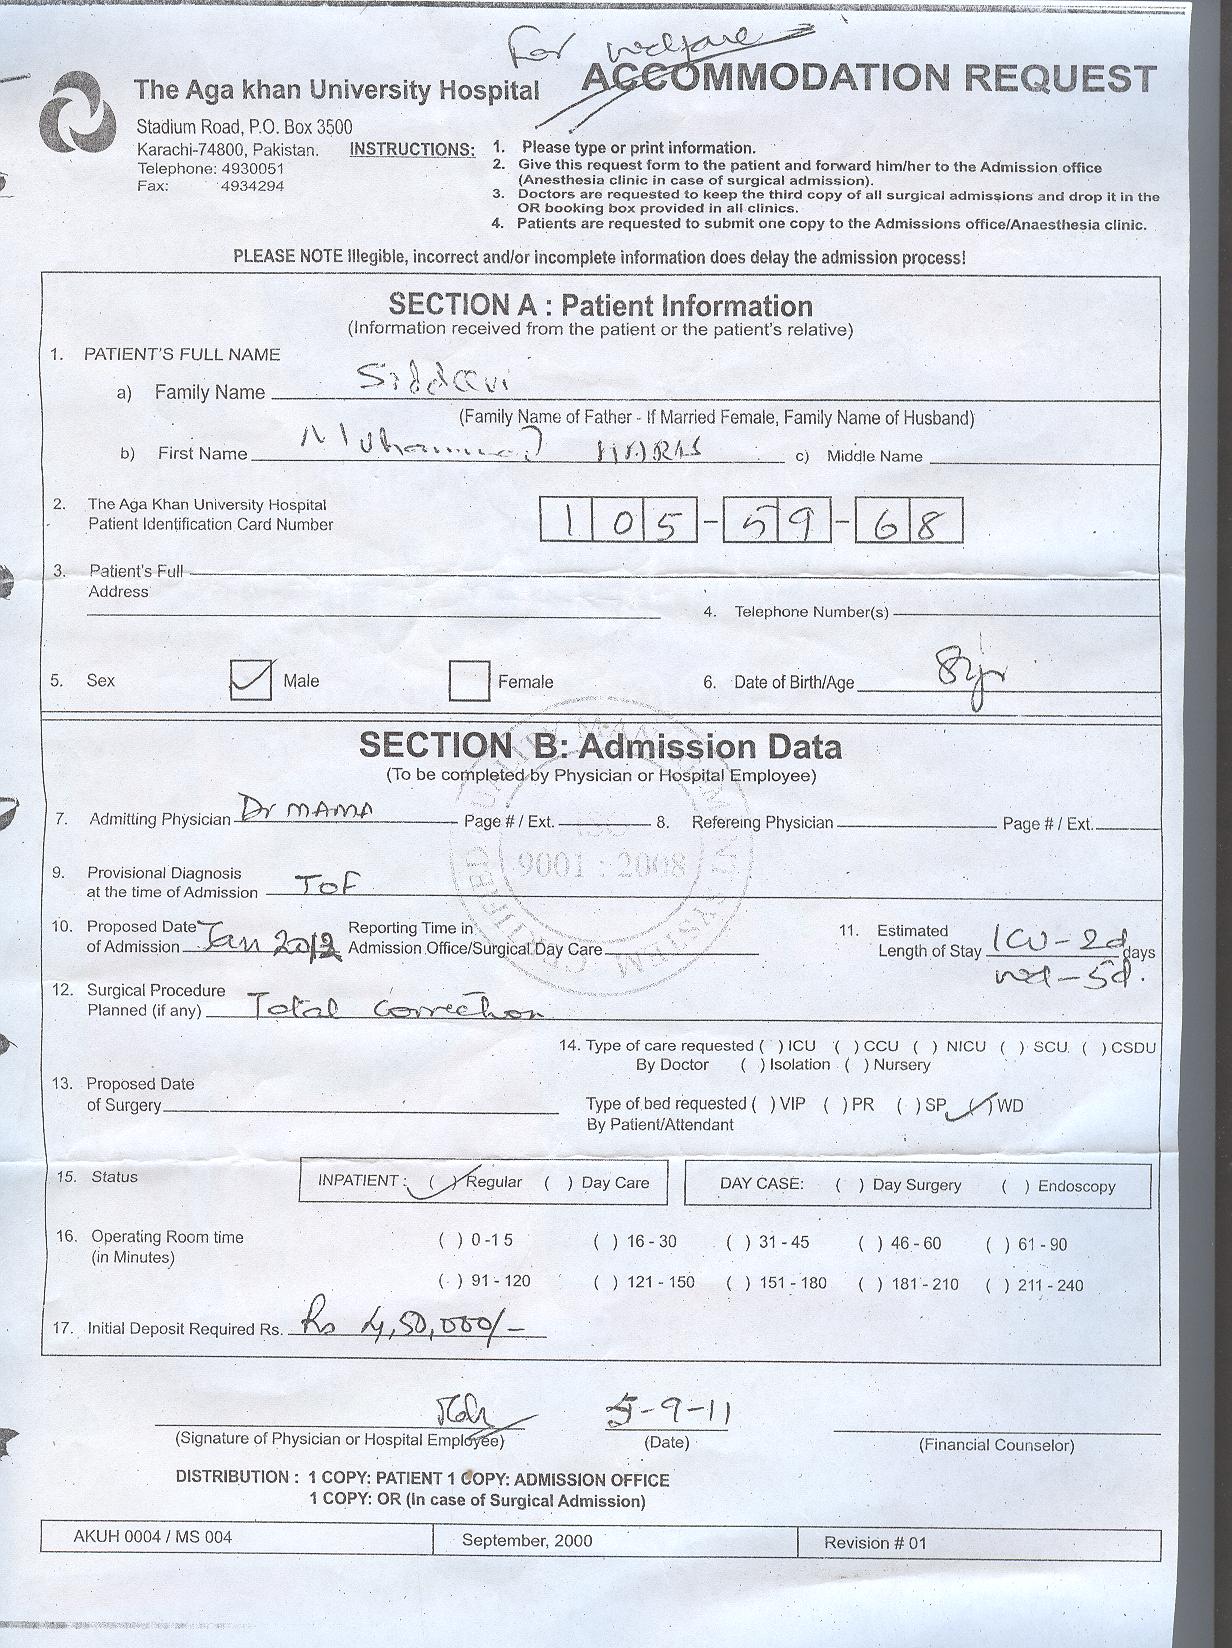 For welfare
The Aga khan University Hospital
ACCOMMODATION REQUEST
Stadium Road, P.O. Box 3500
Karachi-74800, Pakistan.
Telephone: 4930051
Fax: 4934294
INSTRUCTIONS: 1. Please type or print information.
2. Give this request form to the patient and forward him/her to the Admission office
(Anesthesia clinic in case of surgical admission).
3. Doctors are requested to keep the third copy of all surgical admissions and drop it in the
OR booking box provided in all clinics.
4. Patients are requested to submit one copy to the Admissions office/Anaesthesia clinic.
PLEASE NOTE Illegible, incorrect and/or incomplete information does delay the admission process!
SECTION A : Patient Information
(Information received from the patient or the patient's relative)
1. PATIENT'S FULL NAME
a) Family Name
(Family Name of Father - If Married Female, Family Name of Husband)
b) First Name Muhammad c) Middle Name
2. The Aga Khan University Hospital
Patient Identification Card Number 105-59-68
3. Patient's Full
Address
4. Telephone Number(s)
5. Sex Male Female 6. Date of Birth/Age 8yr
SECTION B: Admission Data
(To be completed by Physician or Hospital Employee)
7. Admitting Physician Dr MAMA Page # / Ext. 8. Refereing Physician Page # / Ext.
9. Provisional Diagnosis
at the time of Admission TOF
ISO
9001 : 2008
CERTIFIED QUALITY MANAGEMENT SYSTEM
10. Proposed Date of Admission Jan 2012 Reporting Time in
Admission Office/Surgical Day Care
11. Estimated
Length of Stay ICU-2d days
wd-5d.
12. Surgical Procedure
Planned (if any) Total correction
14. Type of care requested ( ) ICU ( ) CCU ( ) NICU ( ) SCU ( ) CSDU
By Doctor ( ) Isolation ( ) Nursery
13. Proposed Date
of Surgery
Type of bed requested ( ) VIP ( ) PR ( ) SP (✓) WD
By Patient/Attendant
15. Status INPATIENT : (✓) Regular ( ) Day Care DAY CASE: ( ) Day Surgery ( ) Endoscopy
16. Operating Room time
(in Minutes)
( ) 0-15 ( ) 16 - 30 ( ) 31 - 45 ( ) 46 - 60 ( ) 61 - 90
( ) 91 - 120 ( ) 121 - 150 ( ) 151 - 180 ( ) 181 - 210 ( ) 211 - 240
17. Initial Deposit Required Rs. Rs 4,50,000/-
5-9-11
(Signature of Physician or Hospital Employee) (Date) (Financial Counselor)
DISTRIBUTION : 1 COPY: PATIENT 1 COPY: ADMISSION OFFICE
1 COPY: OR (In case of Surgical Admission)
AKUH 0004 / MS 004 September, 2000 Revision # 01